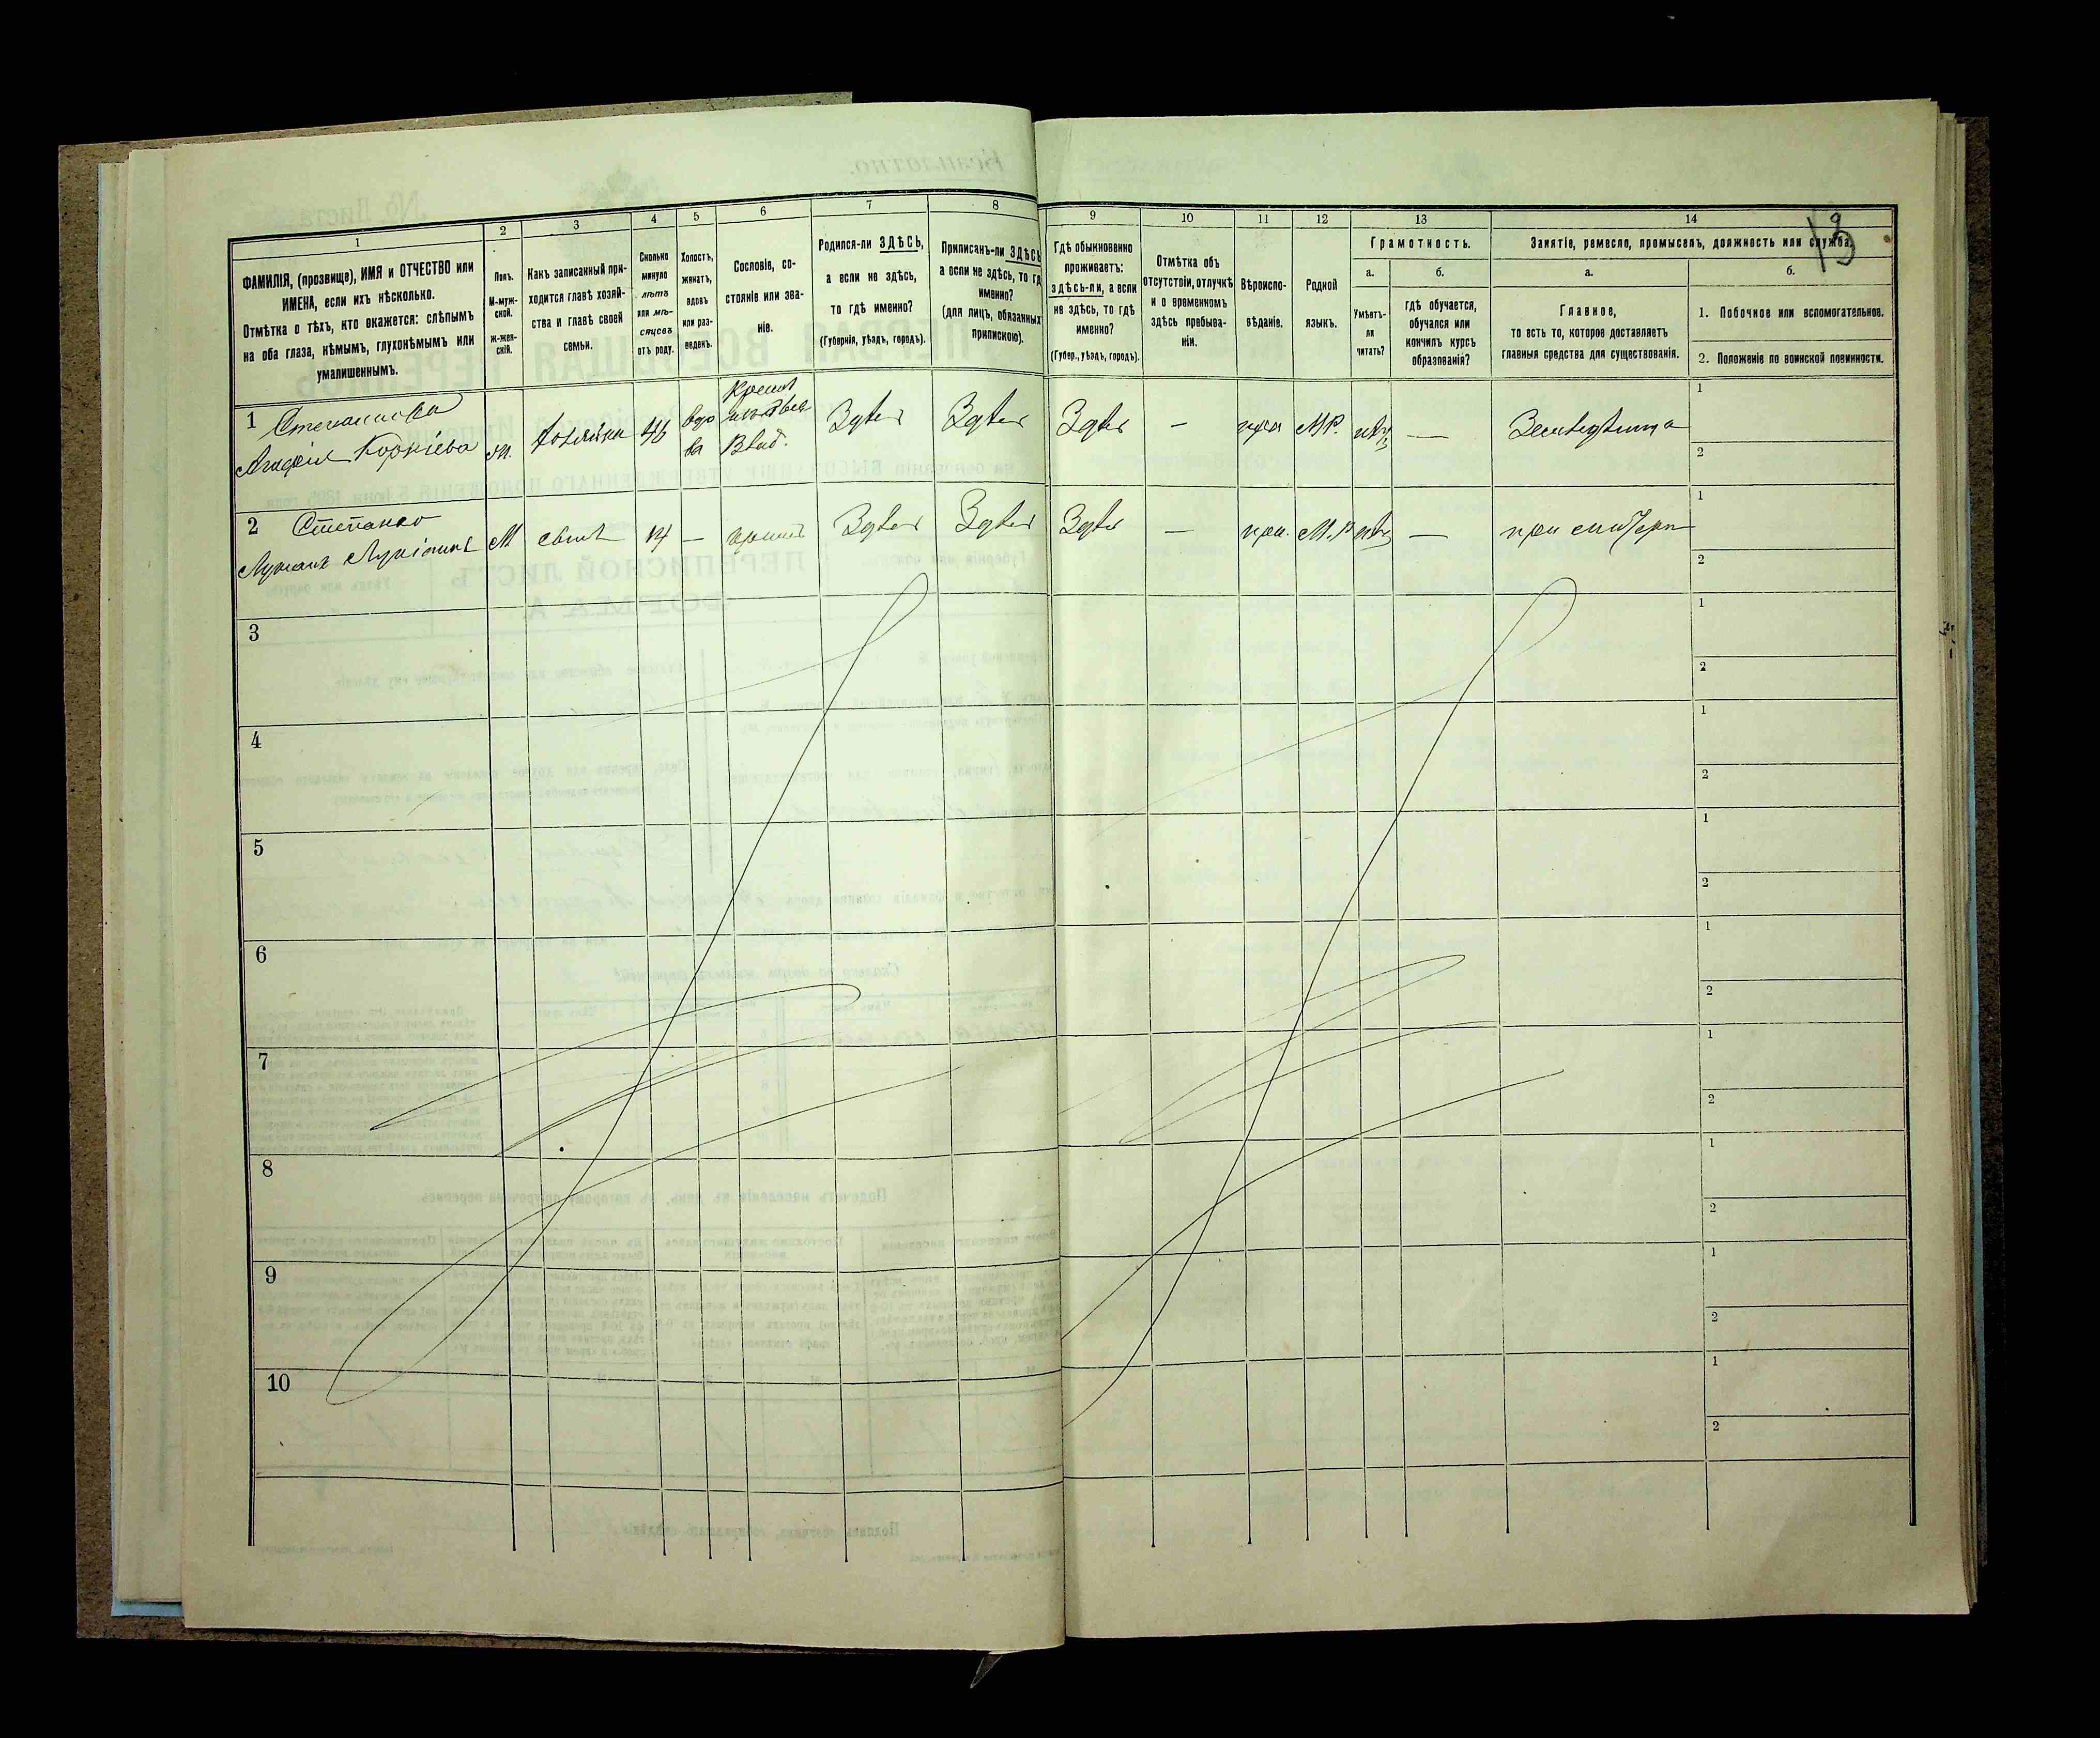 13
1
2
3
4
5
6
7
8
9
10
11
12
13
14
ФАМИЛІЯ, (прозвище), ИМЯ и ОТЧЕСТВО или
ИМЕНА, если ихъ нѣсколько.
Отмѣтка о тѣхъ, кто окажется: слѣпымъ
на оба глаза, нѣмымъ, глухонѣмымъ или
умалишеннымъ.
Полъ.
М-муж-
ской.
ж-жен-
скій.
Какъ записанный при-
ходится главѣ хозяй-
ства и главѣ своей
семьи.
Сколько
минуло
лѣтъ
или мѣ-
сяцевъ
отъ роду.
Холостъ,
женатъ,
вдовъ
или раз-
веденъ.
Сословіе, со-
стояніе или зва-
ніе.
Родился-ли ЗДѢСЬ,
а если не здѣсь,
то гдѣ именно?
(Губернія, уѣздъ, городъ).
Приписанъ-ли ЗДѢСЬ,
а если не здѣсь, то гдѣ
именно?
(для лицъ, обязанныхъ
припискою).
Гдѣ обыкновенно
проживаетъ:
здѣсь-ли, а если
не здѣсь, то гдѣ
именно?
(Губер., уѣздъ, городъ).
Отмѣтка объ
отсутствіи, отлучкѣ
и о временномъ
здѣсь пребыва-
ніи.
Вѣроиспо-
вѣданіе.
Родной
языкъ.
Грамотность.
а.
б.
Умѣетъ-
ли
читать?
гдѣ обучается,
обучался или
кончилъ курсъ
образованія?
Занятіе, ремесло, промыселъ, должность или служба.
а.
б.
Главное,
то есть то, которое доставляетъ
главныя средства для существованія.
1. Побочное или вспомогательное.
2. Положеніе по воинской повинности.
1
Агафія Корніева
хозяйка 46 вдо
ва
Здѣсь Здѣсь Здѣсь — пра М.Р. нѣтъ —
1
2
2 Степанко
М сынъ 14 — Здѣсь Здѣсь Здѣсь — пра. М.Р нѣтъ — при матери
1
2
3
1
2
4
1
2
5
1
2
6
1
2
7
1
2
8
1
2
9
1
2
10
1
2